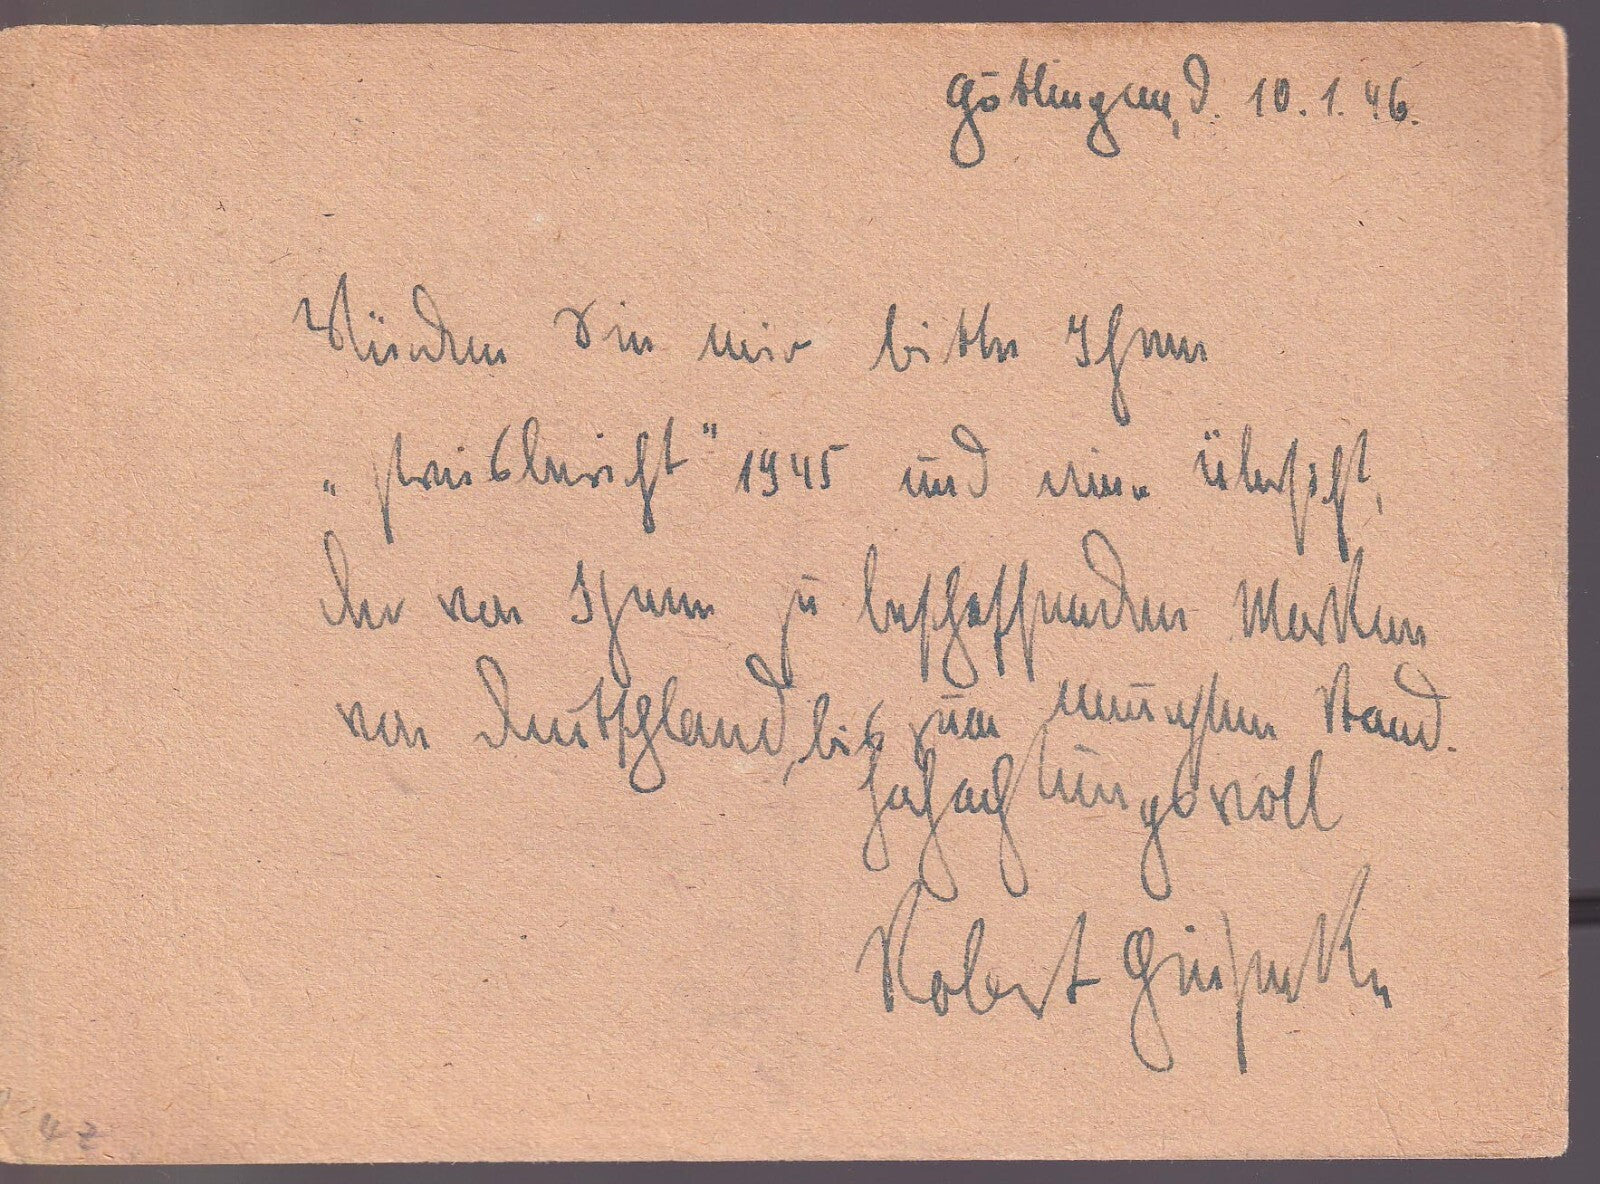 Göttingen, d. 10.1.46.
Würden Sie mir bitte Ihren
„Preisbericht" 1945 und eine Übersicht,
der von Ihnen zu beschaffenden Marken
von Deutschland, bis zum neuesten Stand.
Hochachtungsvoll
Robert
4 z